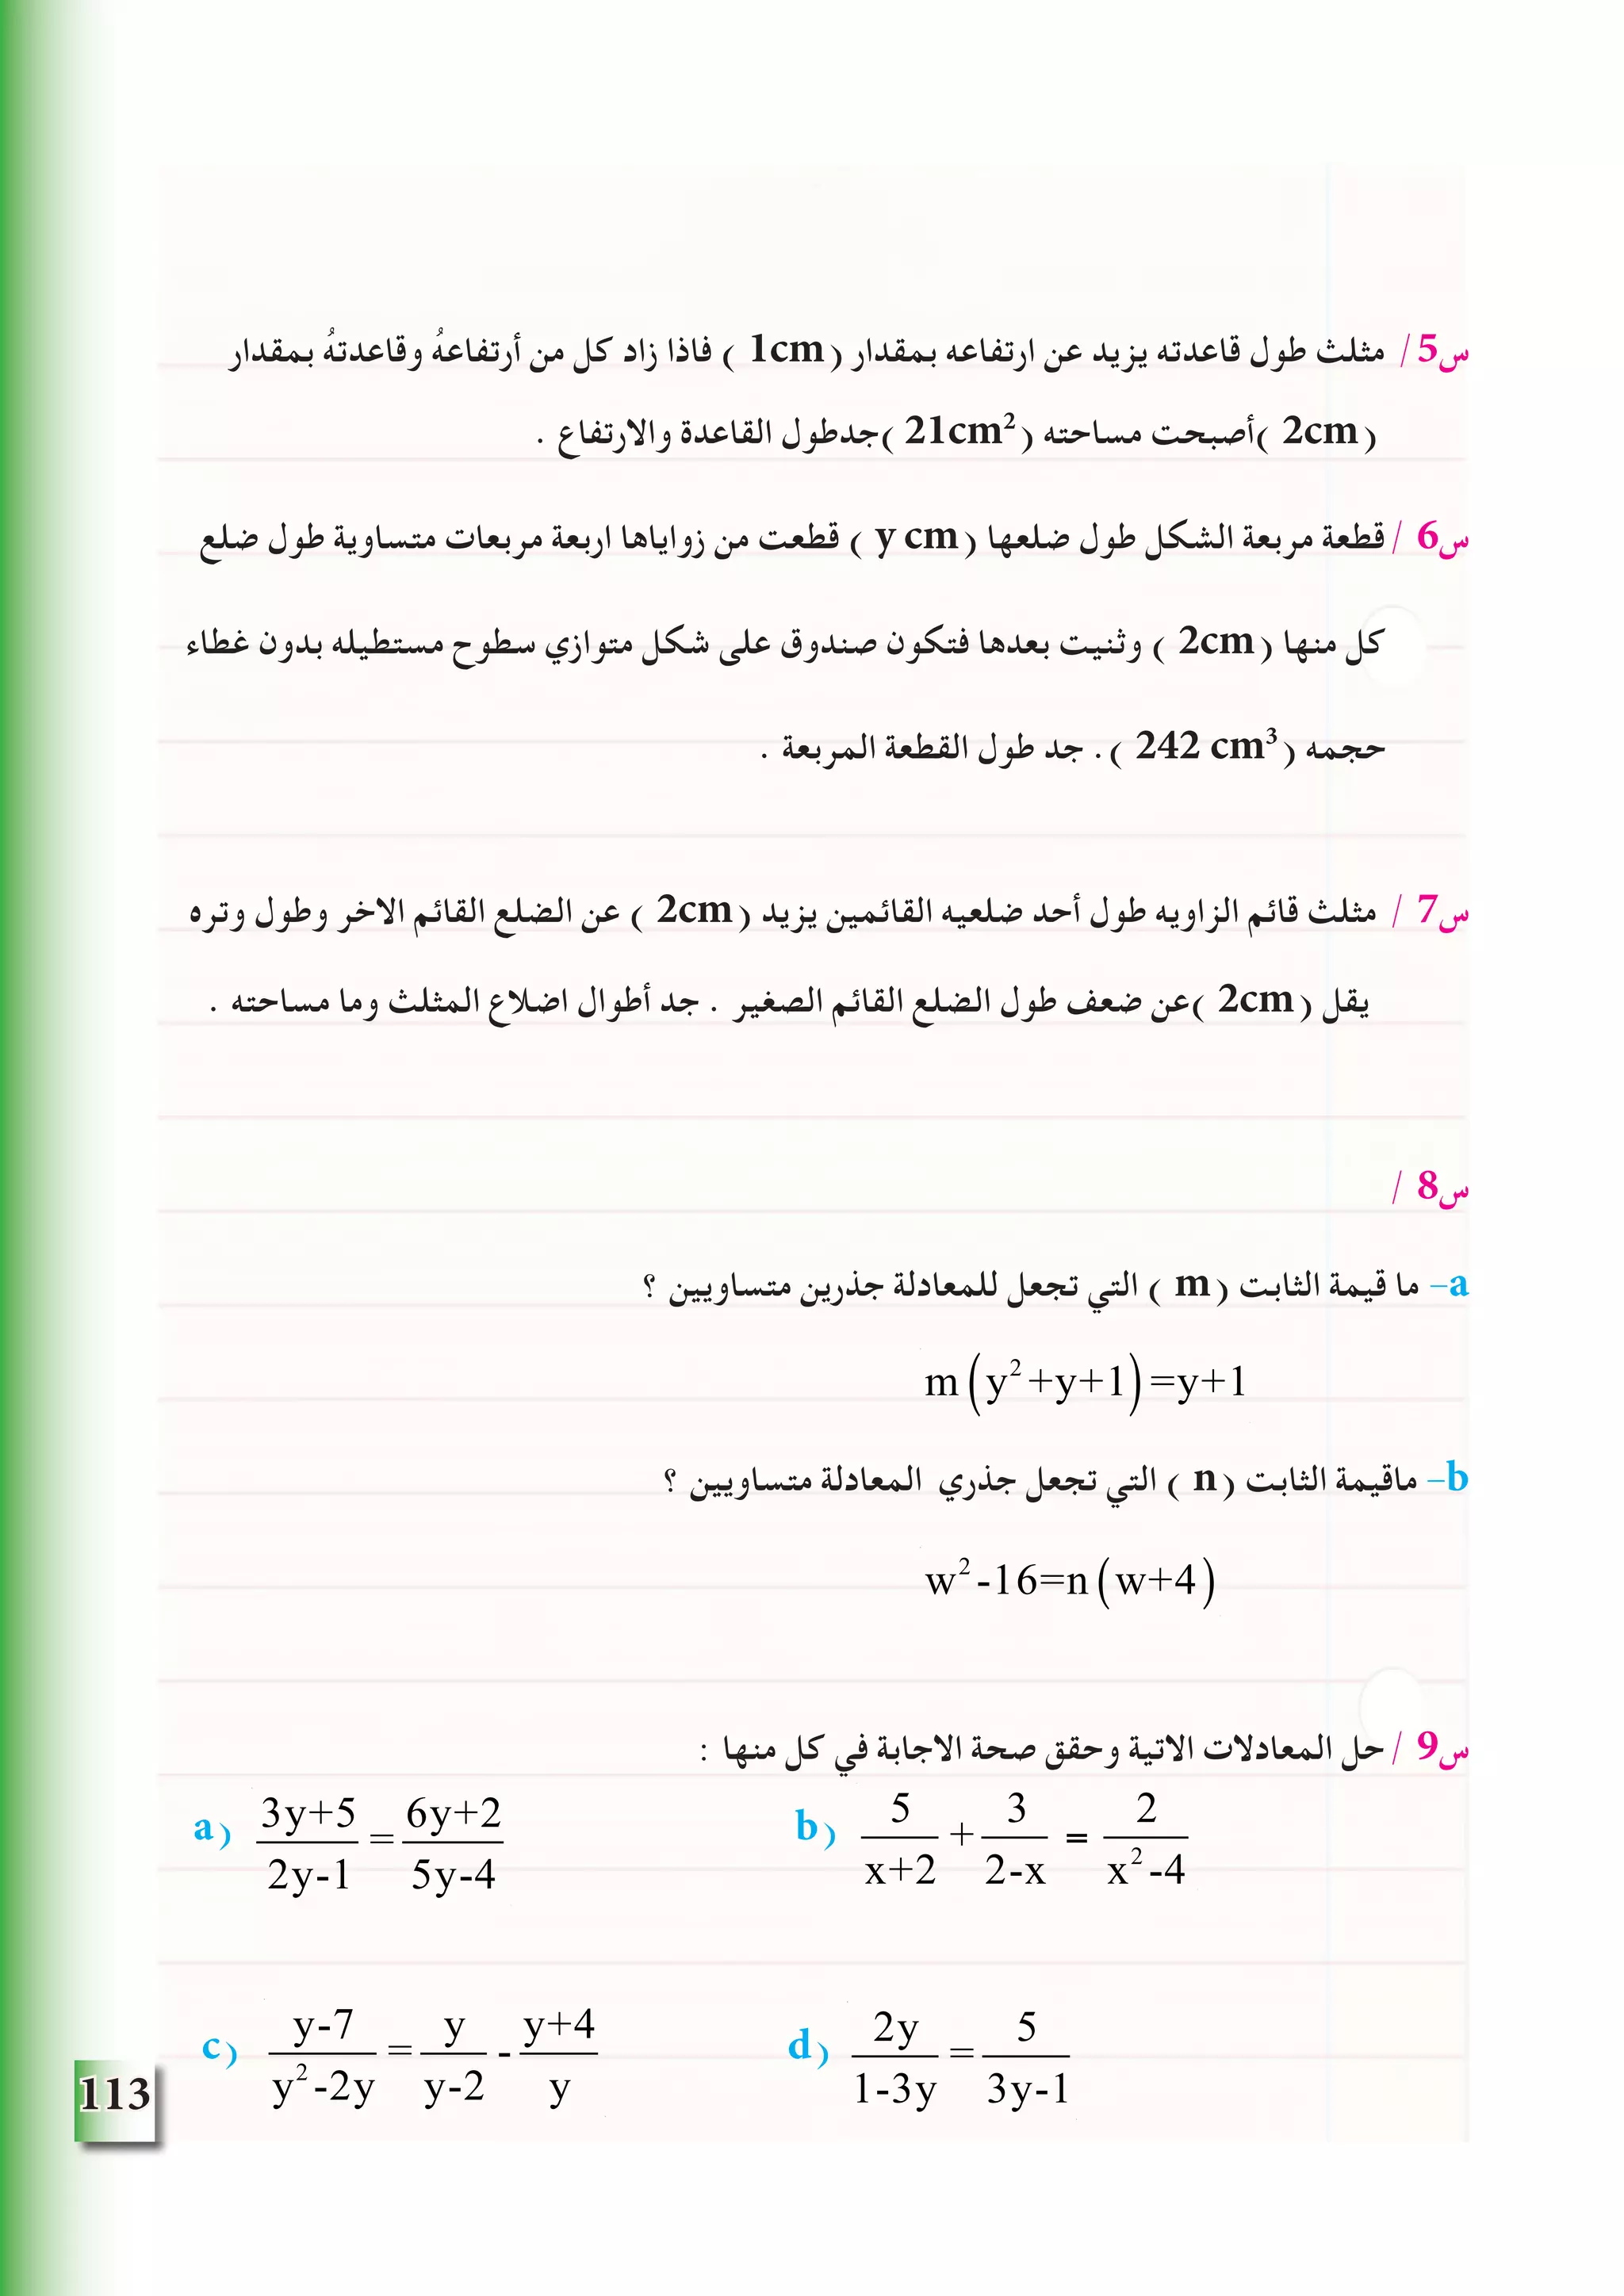 س5/ مثلث طول قاعدته يزيد عن ارتفاعه بمقدار (1cm ) فاذا زاد كل من أرتفاعهُ وقاعدتهُ بمقدار
(2cm )أصبحت مساحته (21cm² )جدطول القاعدة والارتفاع .
س6 / قطعة مربعة الشكل طول ضلعها (y cm ) قطعت من زواياها اربعة مربعات متساوية طول ضلع
كل منها (2cm ) وثنيت بعدها فتكون صندوق على شكل متوازي سطوح مستطيله بدون غطاء
حجمه (242 cm³ ). جد طول القطعة المربعة .
س7 / مثلث قائم الزاويه طول أحد ضلعيه القائمين يزيد (2cm ) عن الضلع القائم الاخر وطول وتره
يقل (2cm )عن ضعف طول الضلع القائم الصغير . جد أطوال اضلاع المثلث وما مساحته .
س8 /
a- ما قيمة الثابت (m ) التي تجعل للمعادلة جذرين متساويين ؟
m(y²+y+1)=y+1
b- ماقيمة الثابت (n ) التي تجعل جذري المعادلة متساويين ؟
w²-16=n(w+4)
س9 / حل المعادلات الاتية وحقق صحة الاجابة في كل منها :
a) (3y+5)/(2y-1) = (6y+2)/(5y-4) b) 5/(x+2) + 3/(2-x) = 2/(x²-4)
c) (y-7)/(y²-2y) = y/(y-2) - (y+4)/y d) 2y/(1-3y) = 5/(3y-1)
113